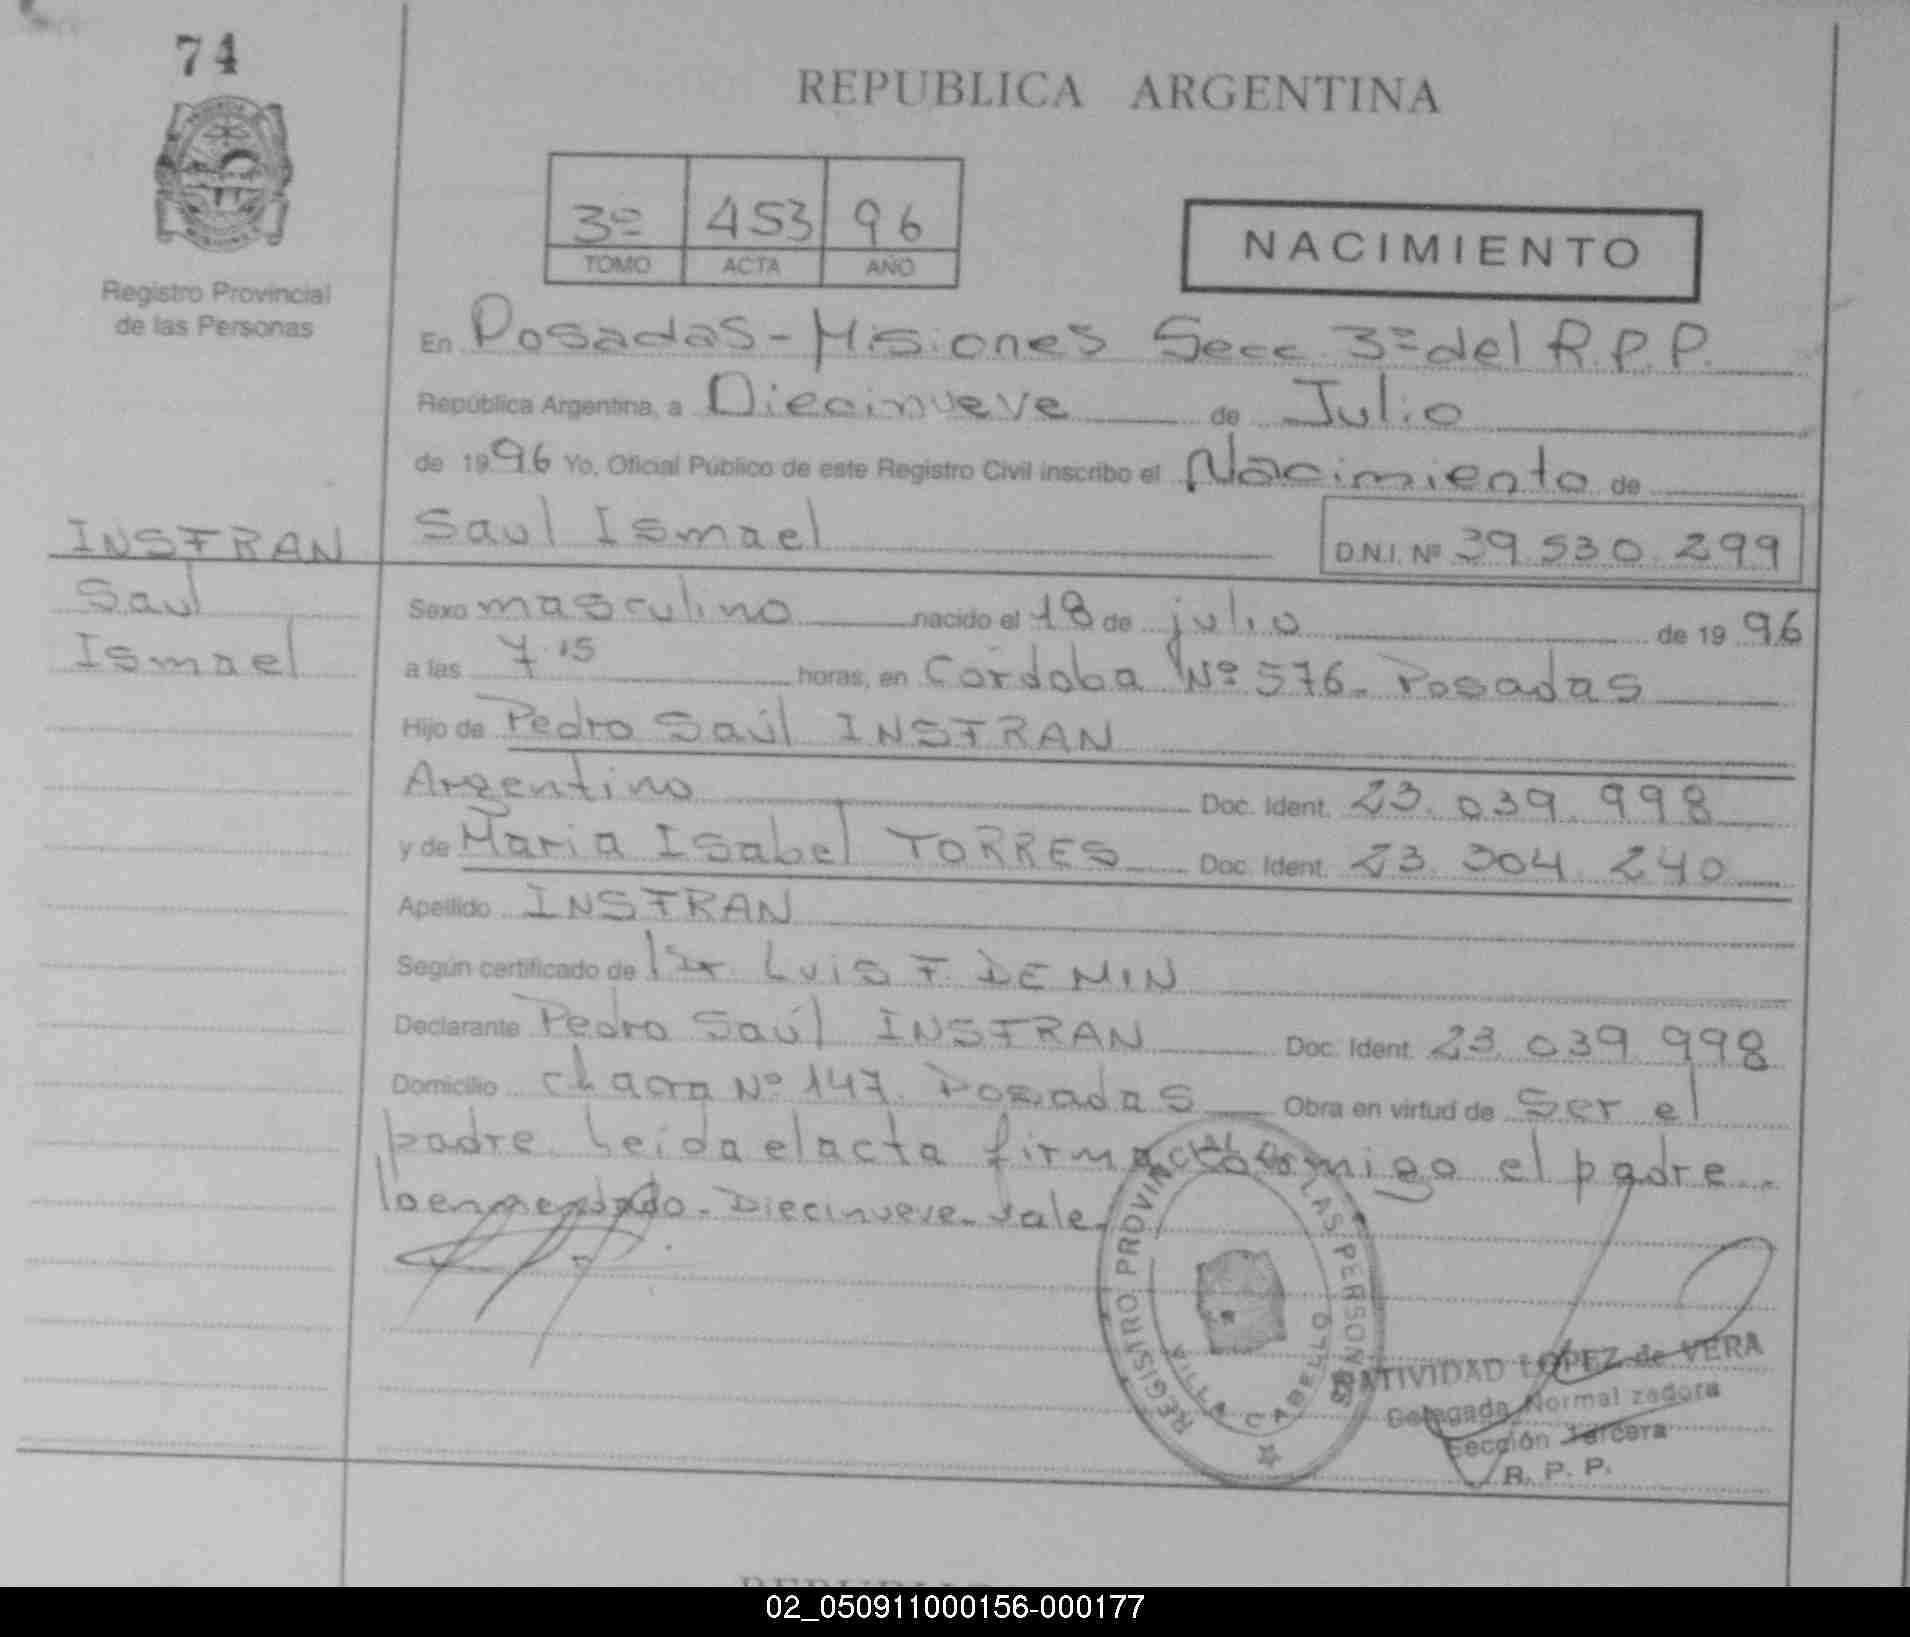 74
REPUBLICA ARGENTINA
3º 453 96
TOMO ACTA AÑO
NACIMIENTO
Registro Provincial
de las Personas
En Posadas - Misiones Secc. 3ª del R.P.P.
República Argentina, a Diecinueve de Julio
de 1996 Yo, Oficial Público de este Registro Civil inscribo el Nacimiento de
Saul Ismael D.N.I. Nº 39.530.299
INSFRAN
Saul
Ismael
Sexo masculino nacido el 18 de julio de 1996
a las 7.15 horas, en Córdoba Nº 576. Posadas
Hijo de Pedro Saúl INSFRAN
Argentino Doc. Ident. 23.039.998
y de Maria Isabel TORRES Doc. Ident. 23.304.240
Apellido INSFRAN
Según certificado de Dr. Luis F. DEMIN
Declarante Pedro Saúl INSFRAN Doc. Ident. 23.039.998
Domicilio chacra Nº 147. Posadas Obra en virtud de Ser el
padre. Leida el acta firma conmigo el padre.-
lo enmendado - Diecinueve - Vale.
REGISTRO PROVINCIAL DE LAS PERSONAS
VILLA CABELLO
NATIVIDAD LOPEZ de VERA
Delegada Normalizadora
Sección Tercera
R. P. P.
02_050911000156-000177